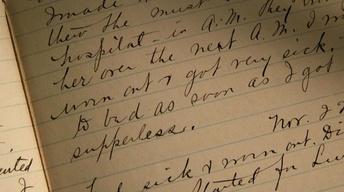 I made
them the must
hospital - in A.M. They
her over the next A.M. I
worn out & got very sick.
to bed as soon as I got
supperless.
Nov.
sick & worn out.
started for